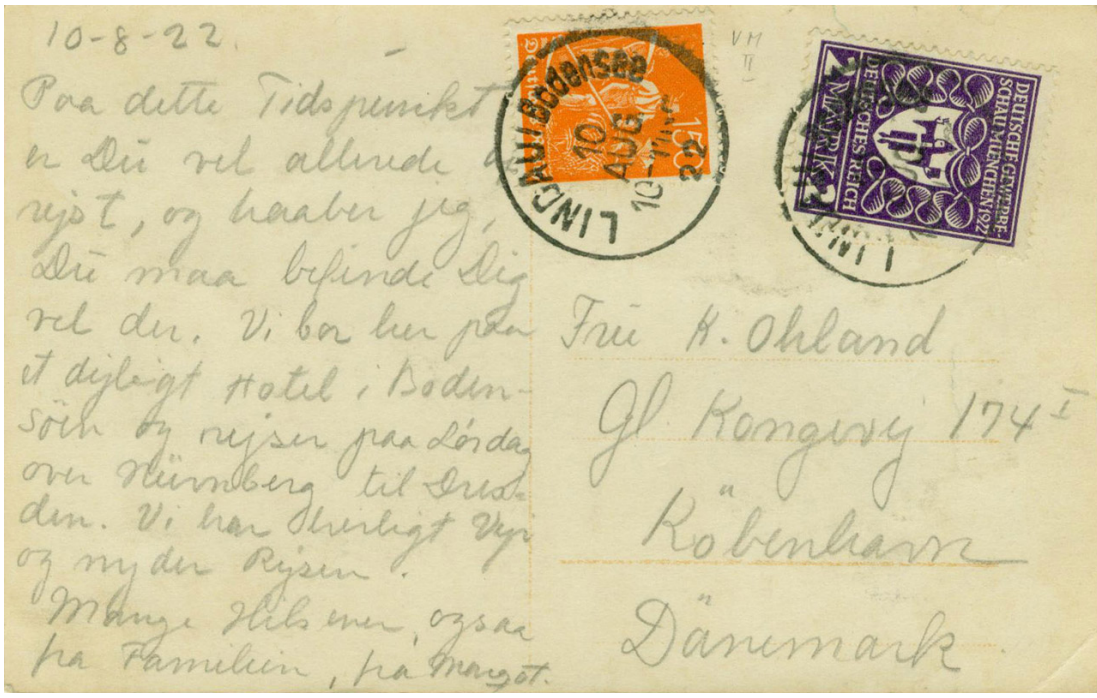 10-8-22.
Paa dette Tidspunkt
er Du vel allerede
rejst, og haaber jeg,
Du maa befinde Dig
vel der. Vi bor her paa
et dejligt Hotel i Boden-
söen og rejser paa Lördag
over Nürnberg til Dres-
den. Vi har herligt Vejr
og nyder Rejsen.
Mange Hilsener, ogsaa
fra Familien, fra Margot.
LINDAU / Bodensee
10
AUG
10-11
22
150
VM
II
DEUTSCHE GEWERBE-
SCHAU MÜNCHEN 1922
DEUTSCHES REICH
2 MARK 2
Frü K. Ohland
Gl Kongevej 174 I
Köbenhavn
Dänemark